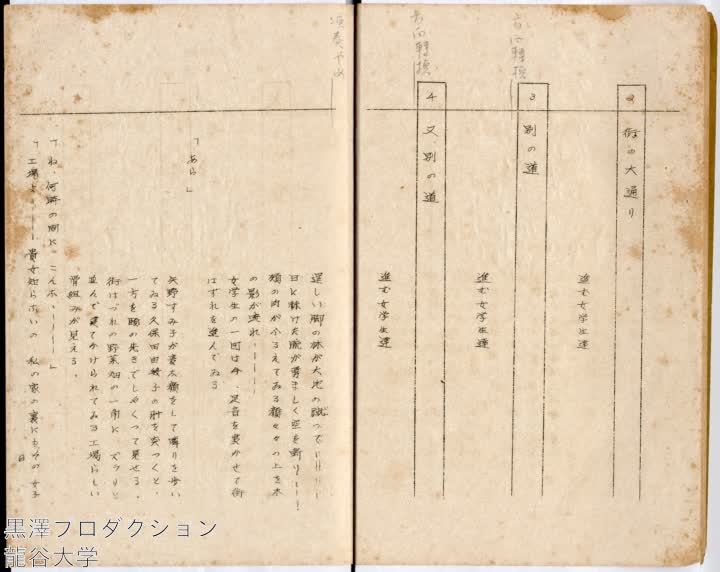 2 街の大通り
進む女学生達
方向轉換
3 別の道
進む女学生達
方向轉換
4 又、別の道
進む女学生達
演奏やめ
逞しい脚の林が大地の蹴つて――
日に妹けた腕が勇ましく空を断り――
頬の肉がふるえてゐる顔々々の上を木
の影が流れ、――
女学生の一団は今、足音を裏かせて街
はずれを進んでゐる
「あら」
矢野すみ子が妻な顔をして隣りを歩い
てゐる久保田田鶴子の肘を突つくと、
一方を顎の先きでしやくつて見せる。
街はづれの野菜畑の一角に、ズラリと
並んで建てかけられてゐる工場らしい
骨組みが見える。
「ね、何時の間に、こんな、――」
「工場よ――貴女知らないの 私の家の裏にも
黒澤プロダクション
龍谷大学